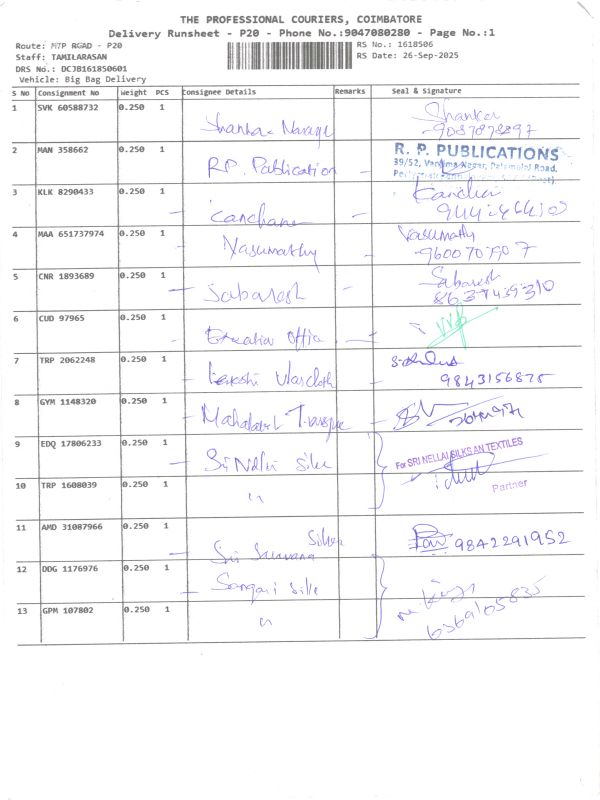 THE PROFESSIONAL COURIERS, COIMBATORE
Delivery Runsheet - P20 - Phone No.:9047080280 - Page No.:1
Route: M7P RGAD - P20
RS No.: 1618506
Staff: TAMILARASAN
RS Date: 26-Sep-2025
DRS No.: DCJB161850601
Vehicle: Big Bag Delivery
S No Consignment No Weight PCS Consignee Details Remarks Seal & Signature
1 SVK 60588732 0.250 1 Shankar
2 MAN 358662 0.250 1 RP. Publication R. P. PUBLICATIONS
39/52,
3 KLK 8290433 0.250 1 Kanchana
4 MAA 651737974 0.250 1 Vasumathy Vasumathy
5 CNR 1893689 0.250 1 Sabaresh Sabaresh
8637439310
6 CUD 97965 0.250 1
7 TRP 2062248 0.250 1 9843156875
8 GYM 1148320 0.250 1
9 EDQ 17806233 0.250 1 Sri Nellai Silks For SRI NELLAI SILKS AN TEXTILES
Partner
10 TRP 1608039 0.250 1 "
11 AMD 31087966 0.250 1 9842291952
12 DDG 1176976 0.250 1
13 GPM 107802 0.250 1 "
6369105835